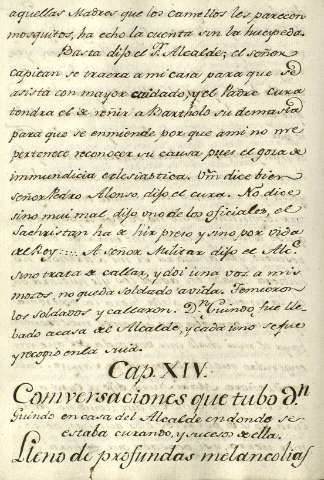 aquellas Madres que los camellos les parecen
mosquitos, ha echo la cuenta sin la huespeda.
Basta dijo el Sr. Alcalde; el señor
capitan se traera a mi casa para que se
asista con mayor cuidado; y el Padre cura
tendra el de reñir a Bartholo su demasia
para que se enmiende por que ami no me
pertenece reconocer su causa pues el goza de
immundicia eclesiastica. Vm dice bien
señor Pedro Alonso, dijo el cura. No dice
sino mui mal, dijo uno de los oficiales, el
Sachristan ha de hir preso y sino por vida
del Rey ..... A señor Militar dijo el Alce.
sino trata de callar, y doi una voz a mis
mozos, no queda soldado a vida. Temieron
los soldados y callaron. Dn. Guindo fue lle-
bado a casa de el Alcalde, y cada uno se fue
y recogio en la suia.
Cap. XIV.
Comversaciones que tubo Dn
Guindo en casa del Alcalde en donde se
estaba curando, y sucesos de ella.
Lleno de profundas melancolias